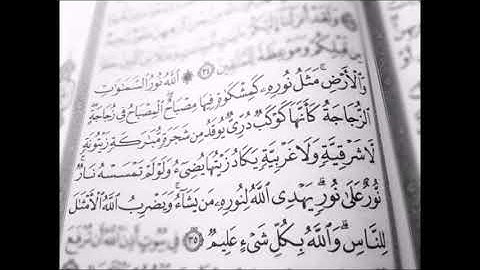 قَبْلِكُمْ وَمَوْعِظَةً لِّلْمُتَّقِينَ ۞ ٱللَّهُ نُورُ ٱلسَّمَٰوَٰتِ
وَٱلْأَرْضِ ۚ مَثَلُ نُورِهِۦ كَمِشْكَوٰةٍ فِيهَا مِصْبَاحٌ ۖ ٱلْمِصْبَاحُ فِى زُجَاجَةٍ ۖ
ٱلزُّجَاجَةُ كَأَنَّهَا كَوْكَبٌ دُرِّىٌّ يُوقَدُ مِن شَجَرَةٍ مُّبَٰرَكَةٍ زَيْتُونَةٍ
لَّا شَرْقِيَّةٍ وَلَا غَرْبِيَّةٍ يَكَادُ زَيْتُهَا يُضِىٓءُ وَلَوْ لَمْ تَمْسَسْهُ نَارٌ ۚ
نُّورٌ عَلَىٰ نُورٍ ۗ يَهْدِى ٱللَّهُ لِنُورِهِۦ مَن يَشَآءُ ۚ وَيَضْرِبُ ٱللَّهُ ٱلْأَمْثَٰلَ
لِلنَّاسِ ۗ وَٱللَّهُ بِكُلِّ شَىْءٍ عَلِيمٌ ٣٥ فِى بُيُوتٍ أَذِنَ ٱللَّهُ أَن تُرْفَعَ